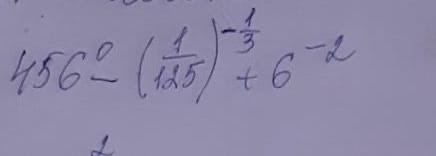 456⁰ - (1/125)^(-1/3) + 6^(-2)
2